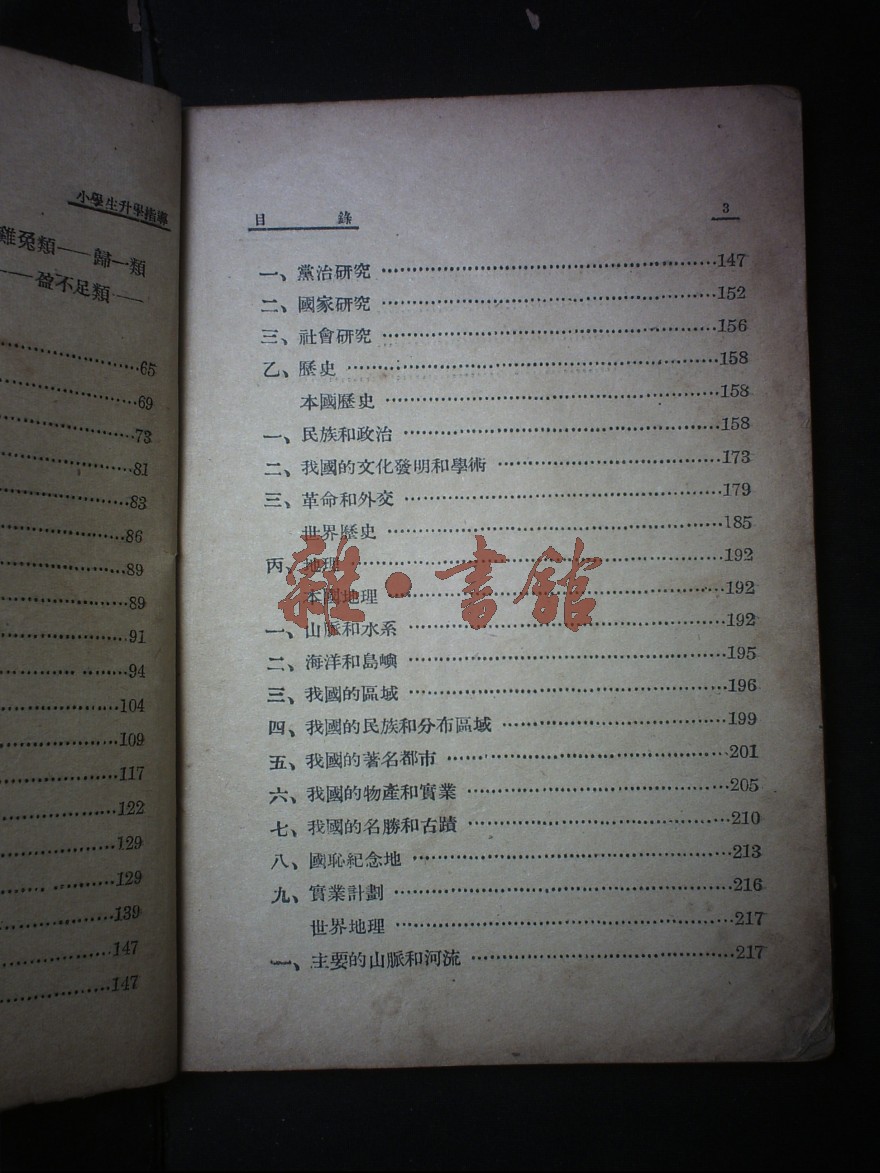 小學生升學指導
雞兔類——歸一類
——盈不足類——
65
69
73
81
83
86
89
89
91
94
104
109
117
122
129
129
139
147
147
目 錄 3
一、黨治研究 147
二、國家研究 152
三、社會研究 156
乙、歷史 158
本國歷史 158
一、民族和政治 158
二、我國的文化發明和學術 173
三、革命和外交 179
世界歷史 185
丙、地理 192
本國地理 192
一、山脈和水系 192
二、海洋和島嶼 195
三、我國的區域 196
四、我國的民族和分布區域 199
五、我國的著名都市 201
六、我國的物產和實業 205
七、我國的名勝和古蹟 210
八、國恥紀念地 213
九、實業計劃 216
世界地理 217
一、主要的山脈和河流 217
雜·書館